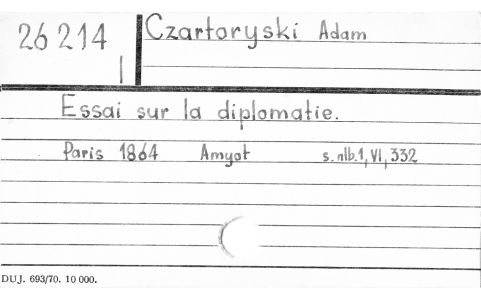 26214 Czartoryski Adam
I
Essai sur la diplomatie.
Paris 1864 Amyot s. nlb. 1, VI, 332
DUJ. 693/70. 10 000.